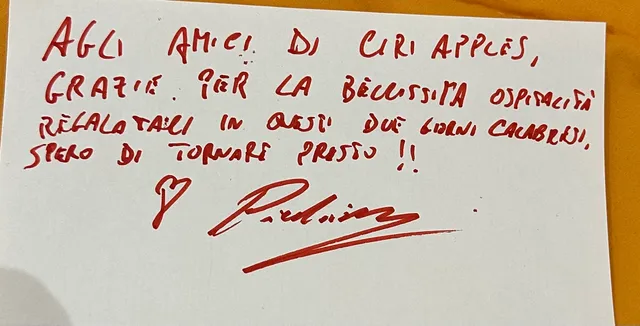 AGLI AMICI DI CIRI APPLES,
GRAZIE PER LA BELLISSIMA OSPITALITÀ
REGALATACI IN QUESTI DUE GIORNI CALABRESI,
SPERO DI TORNARE PRESTO !!